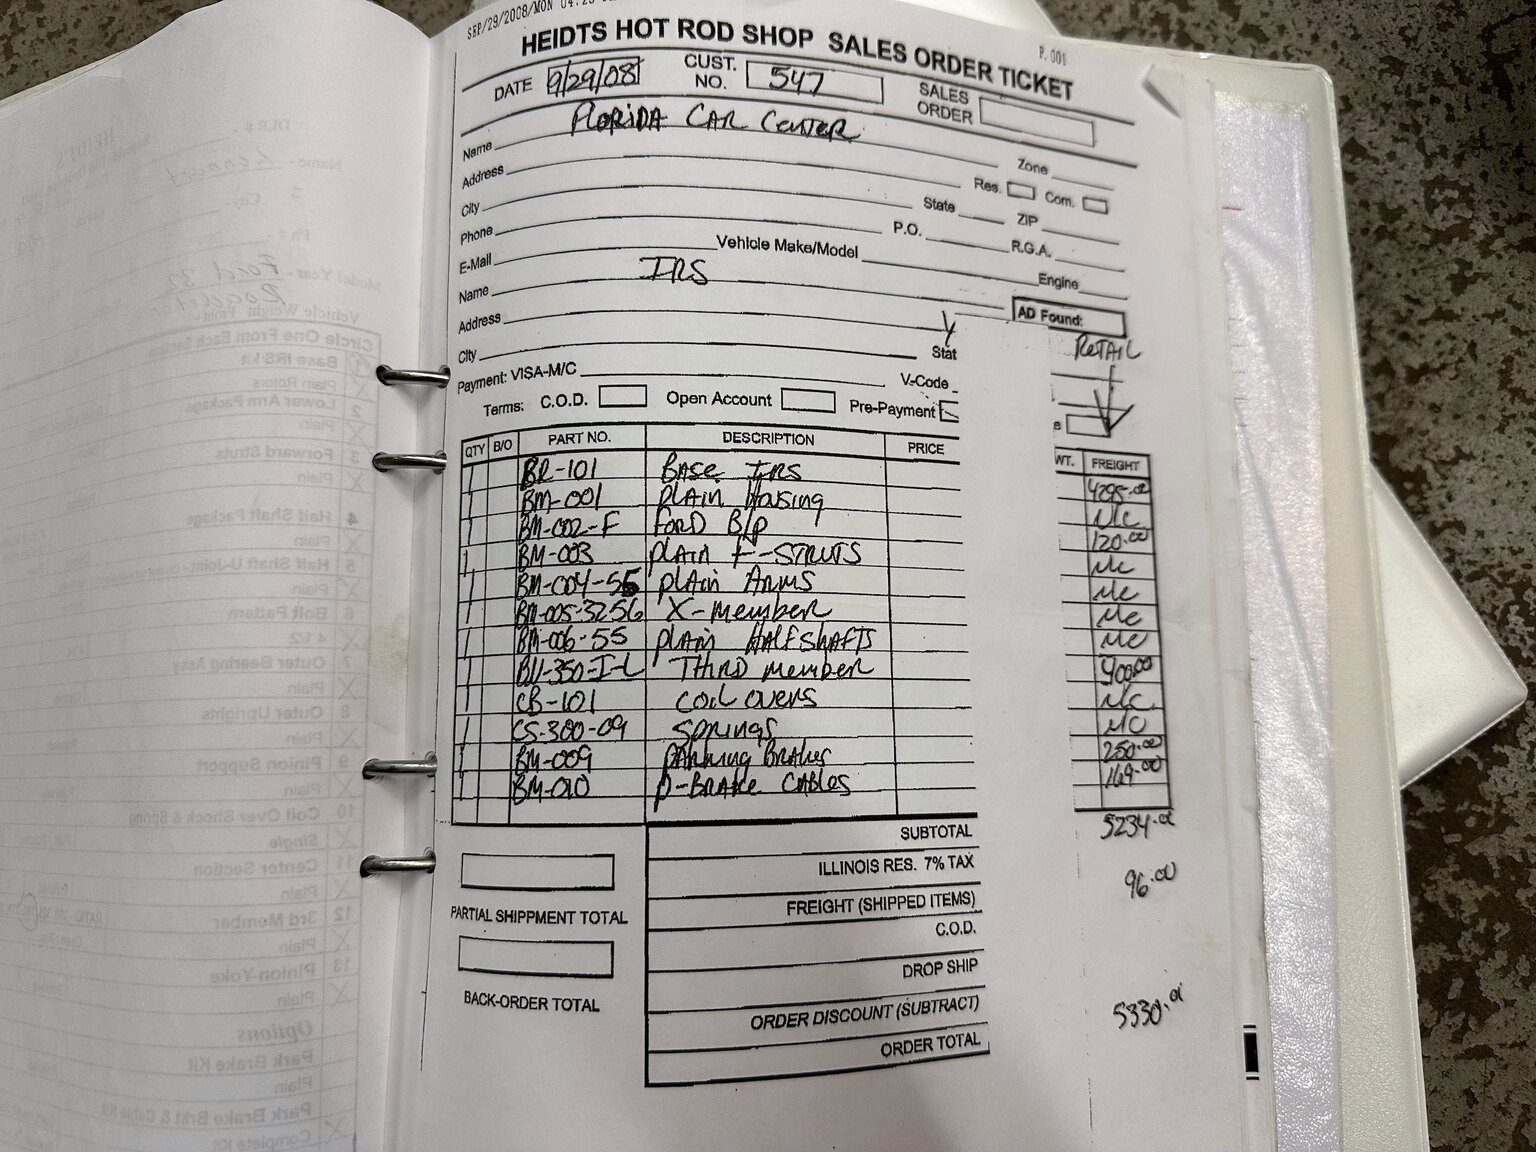 SEP/29/2008/MON
P. 001
HEIDTS HOT ROD SHOP SALES ORDER TICKET
DATE 9/29/08 CUST. NO. 547 SALES ORDER
Name Florida Car Center
Address Zone
City Res. Com.
Phone State ZIP
E-Mail Vehicle Make/Model P.O. R.G.A.
Name IRS Engine
Address AD Found:
City Stat y RETAIL
Payment: VISA-M/C V-Code
Terms: C.O.D. Open Account Pre-Payment e
QTY B/O PART NO. DESCRIPTION PRICE WT. FREIGHT
1 BR-101 BASE IRS 4295.00
1 BM-001 PLAIN Housing N/C
1 BM-002-F FORD B/P 120.00
1 BM-003 PLAIN F-STRUTS N/C
1 BM-004-55 PLAIN ARMS N/C
1 BM-005-3256 X-MEMBER N/C
1 BM-006-55 PLAIN HALFSHAFTS N/C
1 THIRD MEMBER 400.00
1 CB-101 COIL OVERS N/C
1 CS-300-09 SPRINGS N/C
1 BM-009 PARKING BRAKES 250.00
1 BM-010 P-BRAKE CABLES 169.00
SUBTOTAL 5234.00
ILLINOIS RES. 7% TAX
FREIGHT (SHIPPED ITEMS) 96.00
PARTIAL SHIPPMENT TOTAL
C.O.D.
DROP SHIP
BACK-ORDER TOTAL
ORDER DISCOUNT (SUBTRACT)
ORDER TOTAL 5330.00
DLR #
Name -
City -
Ph #
Model Year - Ford 32
Vehicle Weight
Circle One From Each Section
1 Base IRS kit
Plain Rotors
2 Lower Arm Package
Plain
3 Forward Struts
Plain
4 Half Shaft Package
Plain
5 Half Shaft U-Joint
Plain
6 Bolt Pattern
4 1/2
7 Outer Bearing Assy
Plain
8 Outer Uprights
Plain
9 Pinion Support
Plain
10 Coil Over Shock & Spring
Single
11 Center Section
Plain
12 3rd Member
Plain
13 Pinion Yoke
Plain
Options
Park Brake Kit
Plain
Park Brake Brkt & Cable Kit
Complete Kit